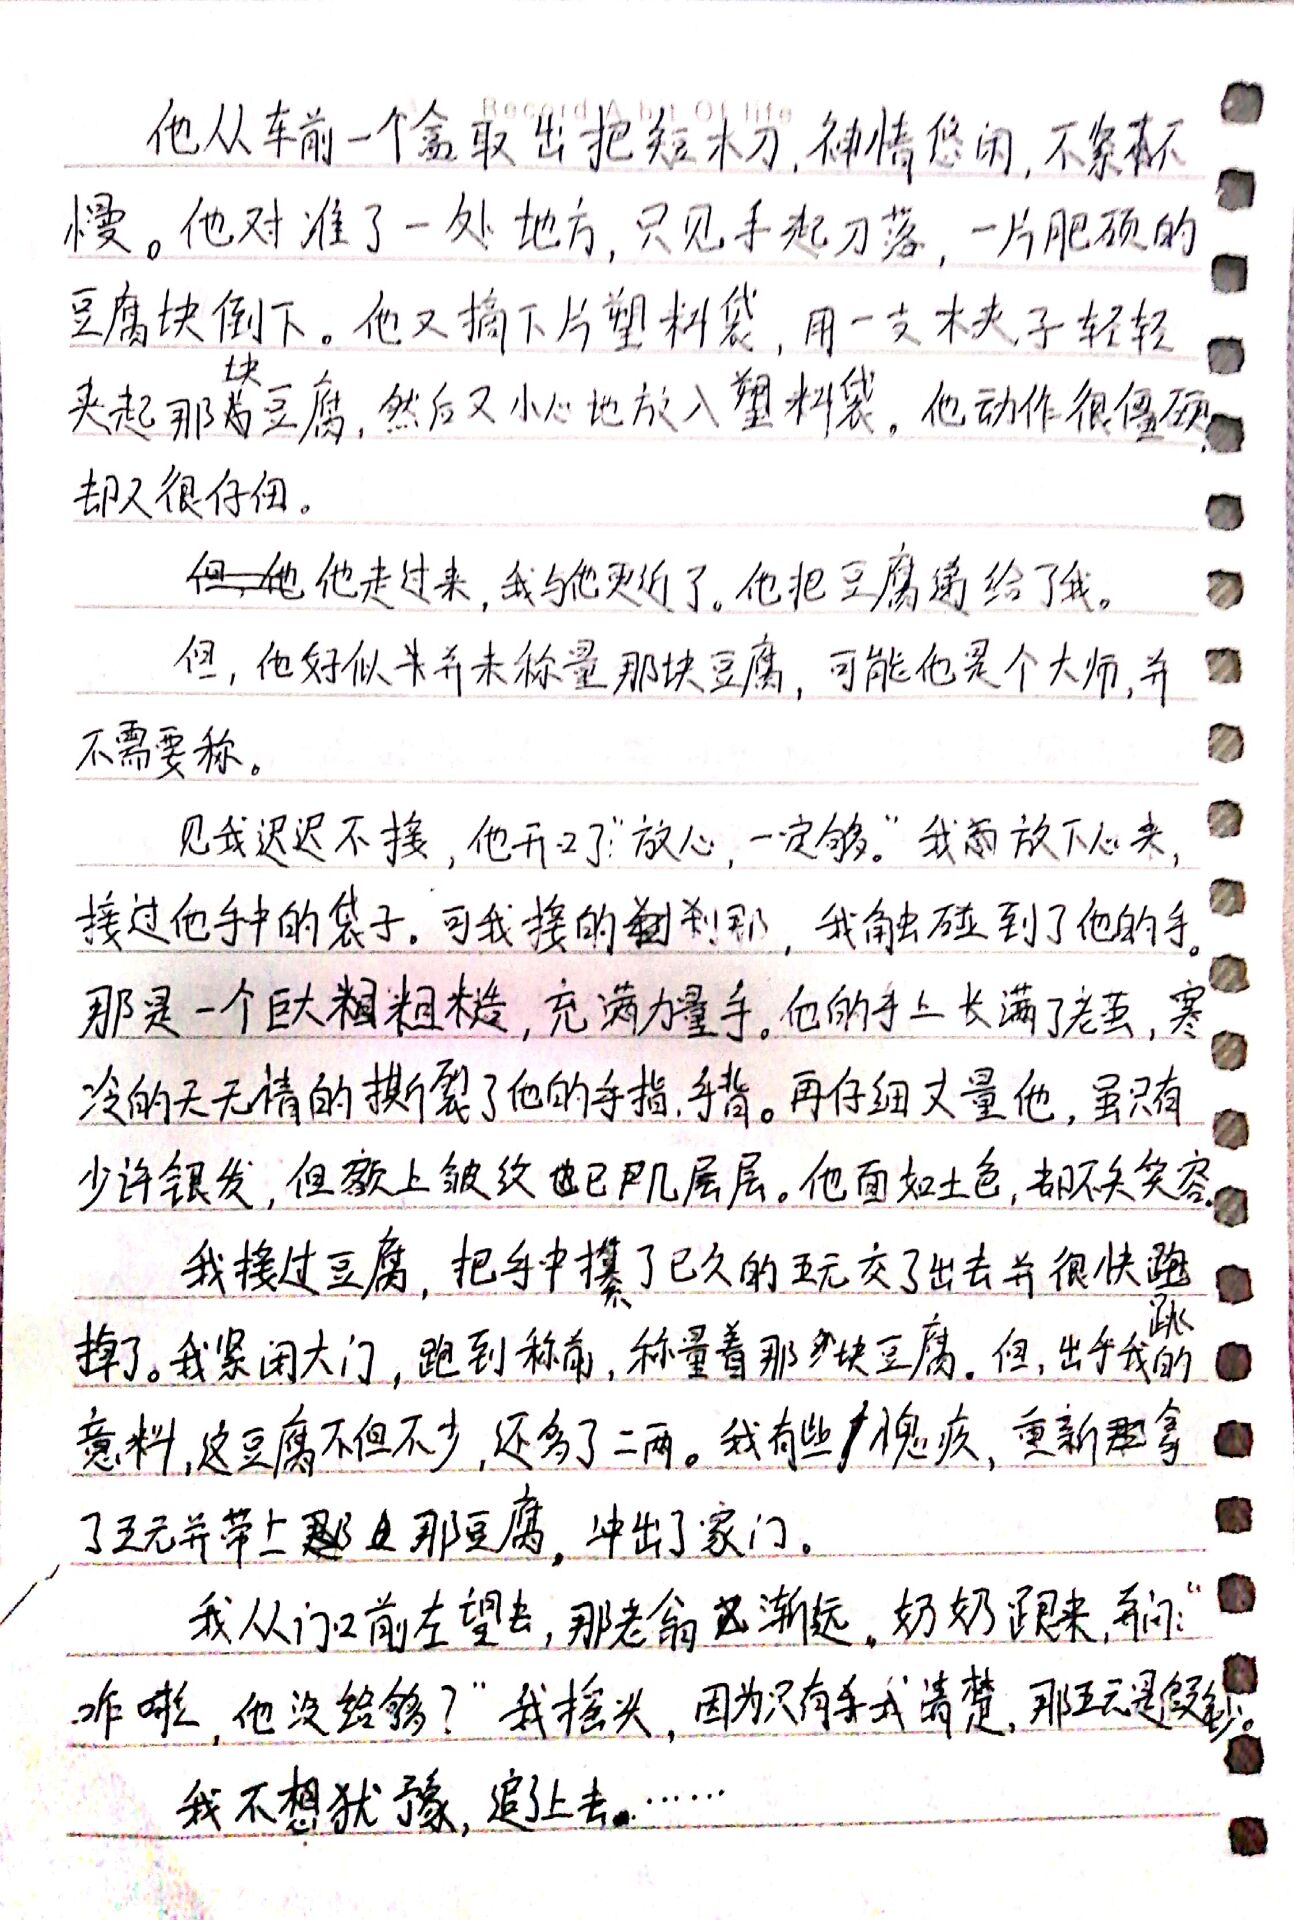 Record A bit Of life
他从车前一个盒取出把短木刀,神情悠闲,不紧不
慢。他对准了一处地方,只见手起刀落,一片肥硕的
豆腐块倒下。他又摘下片塑料袋,用一支木夹子轻轻
夹起那块豆腐,然后又小心地放入塑料袋。他动作很僵硬,
却又很仔细。
他走过来,我与他更近了。他把豆腐递给了我。
但,他好似并未称量那块豆腐,可能他是个大师,并
不需要称。
见我迟迟不接,他开口了:“放心,一定够。”我放下心来,
接过他手中的袋子。可我接的刹那,我触碰到了他的手。
那是一个巨大粗糙,充满力量手。他的手上长满了老茧,寒
冷的天无情的撕裂了他的手指、手背。再仔细丈量他,虽只有
少许银发,但额上皱纹也已几层层。他面如土色,却不失笑容。
我接过豆腐,把手中攥了已久的五元交了出去并很快跑
掉了。我紧闭大门,跑到称前,称量着那块豆腐。但,出乎我的
意料,这豆腐不但不少,还多了二两。我有些愧疚,重新拿
了五元并带上那豆腐,冲出了家门。
我从门口前左望去,那老翁已渐远。奶奶跟来,并问:“
咋啦,他没给够?”我摇头,因为只有我清楚,那五元是假钞。
我不想犹豫,追了上去。……